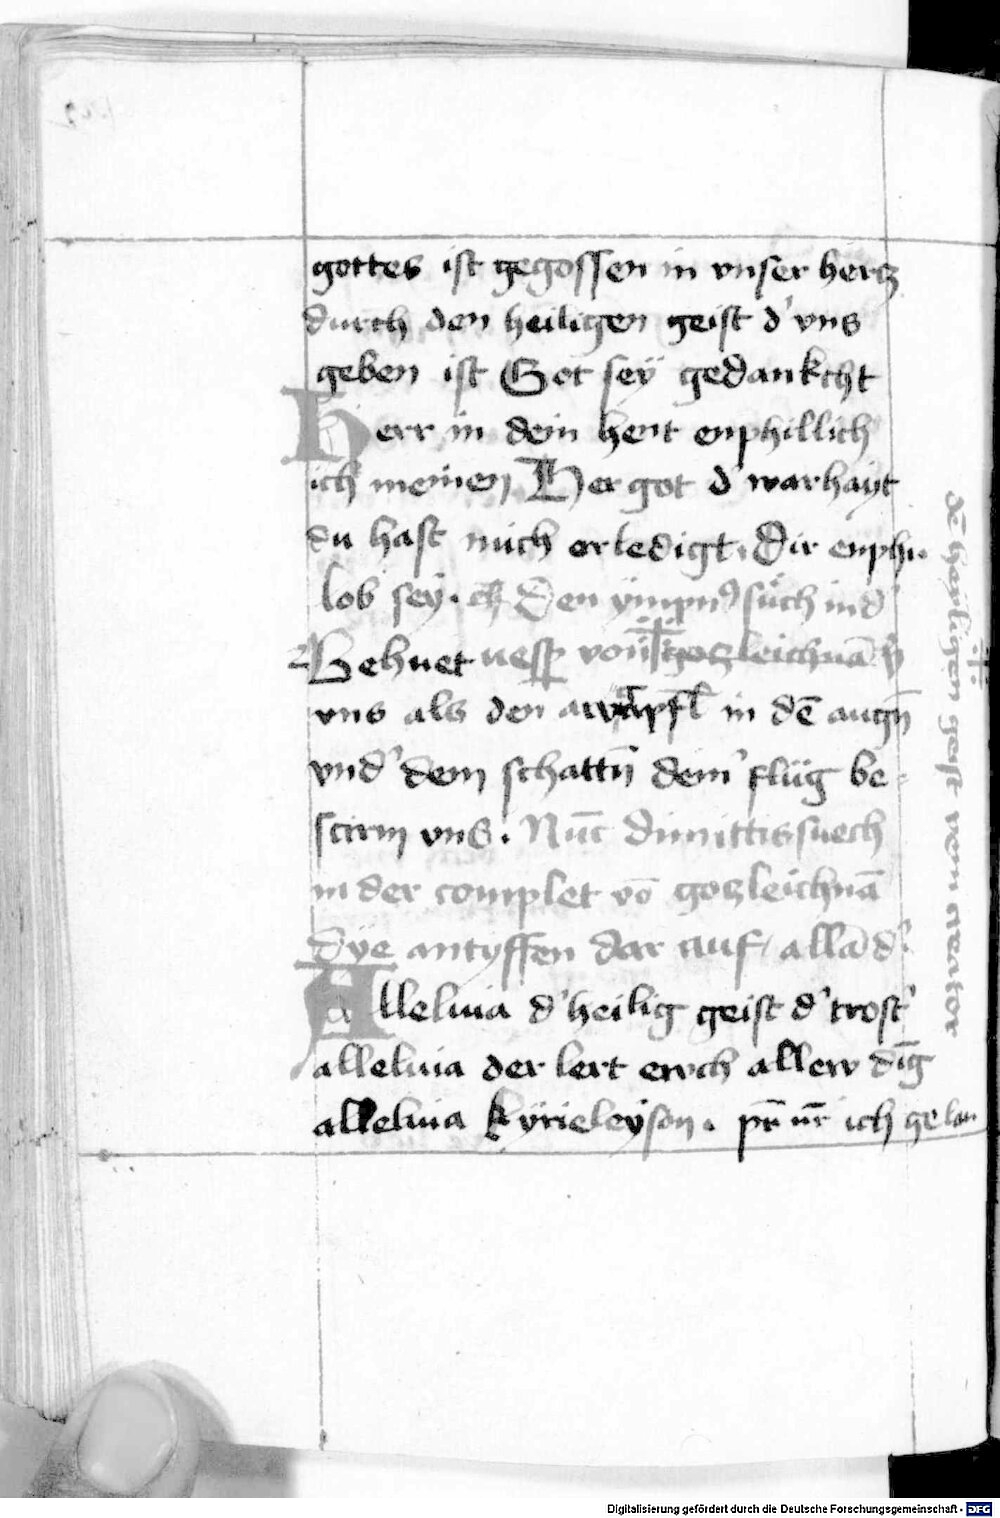 gottes ist gegossen in vnser hertz
durch den heiligen geist d' vns
geben ist Got sey gedankcht
Herr in dein hent enphillich
ich meinen Her got d' warhayt
du hast mich erledigt. Dir enphi.
lob sey. Den ympn9 such in d'
Behuet vesp von gozleichnā
vns als den awapfl in dē augn̄
vnd' dem schattn̄ dein' flüg be-
scirm vns. Nūc dimittis suech
in der complet vō gozleichnā
dye antyffen dar auf / allā d'
Alleluia d' heilig geist d' trost'
alleluia der lert ewch allew dīg
alleluia kyrieleyson. pr̄ nr̄ ich gelau
dē heyligen geist veni creator
Digitalisierung gefördert durch die Deutsche Forschungsgemeinschaft - DFG